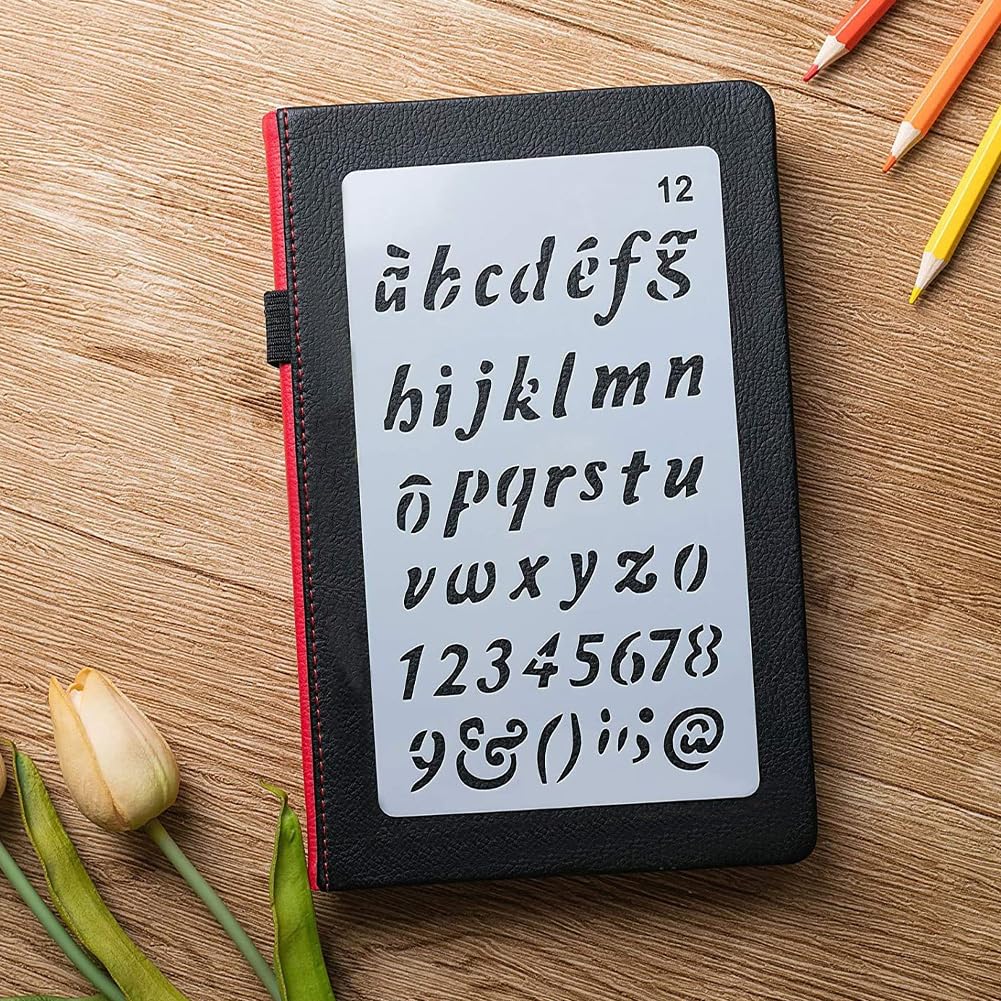 12
àbcdéfğ
hijklmn
ôpqrstu
vwxyz0
12345678
9&()¡!;@